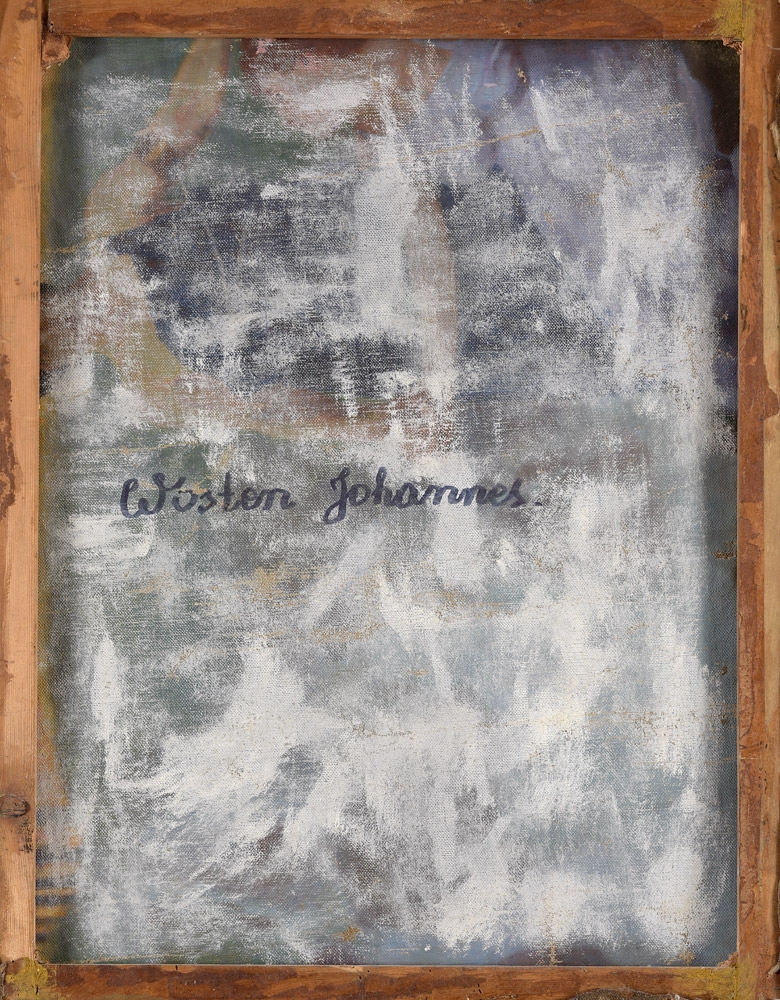 Wösten Johannes.